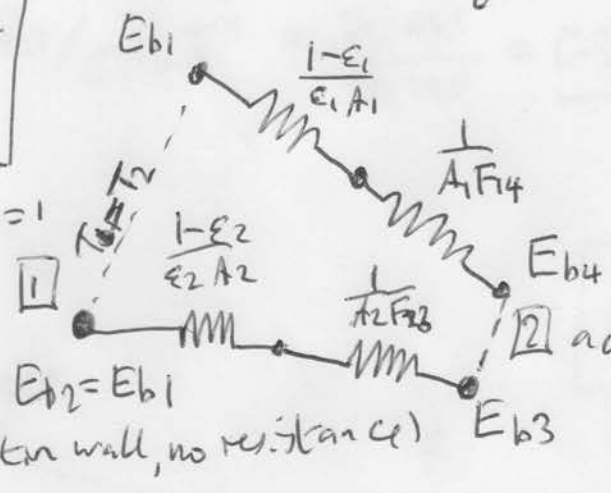 E_b1
1-ε₁
ε₁A₁
1
A₁F₁₄
T₁=T₂
=1
1-ε₂
ε₂A₂
1
A₂F₂₃
E_b4
1
2
E_b2=E_b1
E_b3
wall, no resistance)